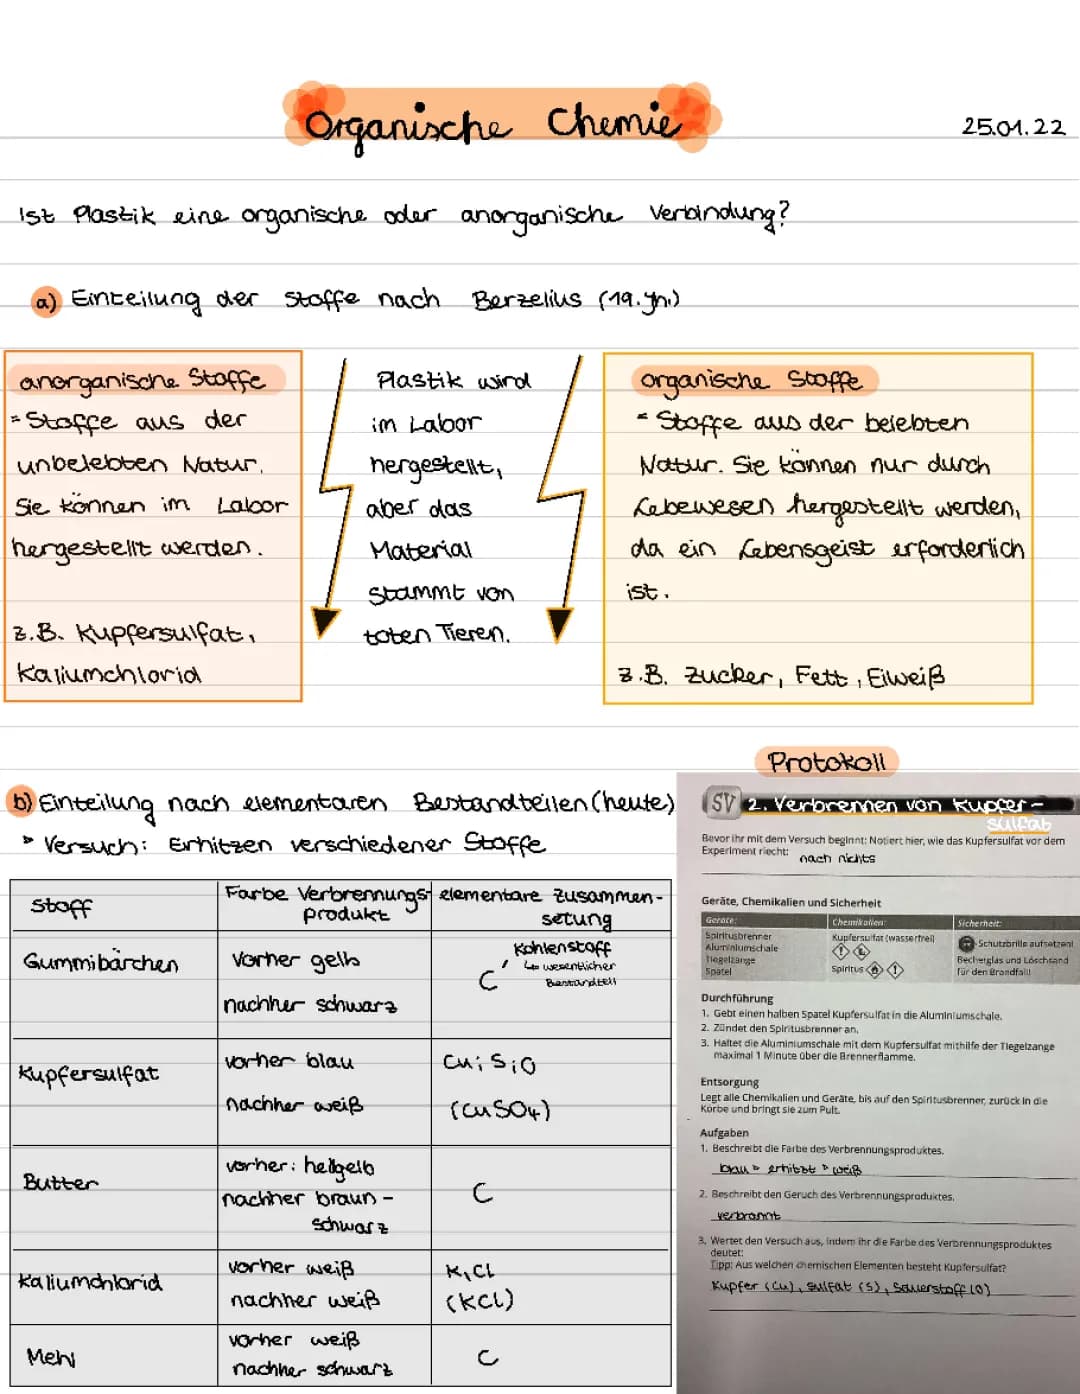 Organische Chemie
25.01.22
Ist Plastik eine organische oder anorganische Verbindung?
a) Einteilung der Stoffe nach Berzelius (19. Jh.)
anorganische Stoffe
= Stoffe aus der
unbelebten Natur.
Sie können im Labor
hergestellt werden.
z.B. Kupfersulfat,
Kaliumchlorid
Plastik wird
im Labor
hergestellt,
aber das
Material
stammt von
toten Tieren.
organische Stoffe
= Stoffe aus der belebten
Natur. Sie können nur durch
Lebewesen hergestellt werden,
da ein Lebensgeist erforderlich
ist.
z.B. Zucker, Fett, Eiweiß
b) Einteilung nach elementaren Bestandteilen (heute)
Versuch: Erhitzen verschiedener Stoffe
Stoff
Farbe Verbrennungs-
produkt
elementare Zusammen-
setung
Gummibärchen
vorher gelb
nachher schwarz
Kohlenstoff
C ↳ wesentlicher
Bestandteil
Kupfersulfat
vorher blau
nachher weiß
Cu; S; O
(CuSO4)
Butter
vorher: hellgelb
nachher braun-
schwarz
C
Kaliumchlorid
vorher weiß
nachher weiß
K, Cl
(KCl)
Mehl
vorher weiß
nachher schwarz
C
Protokoll
SV 2. Verbrennen von Kupfer-
sulfat
Bevor ihr mit dem Versuch beginnt: Notiert hier, wie das Kupfersulfat vor dem
Experiment riecht:
nach nichts
Geräte, Chemikalien und Sicherheit
Geräte:
Chemikalien:
Sicherheit:
Spiritusbrenner
Aluminiumschale
Tiegelzange
Spatel
Kupfersulfat (wasserfrei)
Spiritus
Schutzbrille aufsetzen!
Becherglas und Löschsand
für den Brandfall!
Durchführung
1. Gebt einen halben Spatel Kupfersulfat in die Aluminiumschale.
2. Zündet den Spiritusbrenner an.
3. Haltet die Aluminiumschale mit dem Kupfersulfat mithilfe der Tiegelzange
maximal 1 Minute über die Brennerflamme.
Entsorgung
Legt alle Chemikalien und Geräte, bis auf den Spiritusbrenner, zurück in die
Körbe und bringt sie zum Pult.
Aufgaben
1. Beschreibt die Farbe des Verbrennungsproduktes.
blau ▹ erhitzt ▹ weiß
2. Beschreibt den Geruch des Verbrennungsproduktes.
verbrannt
3. Wertet den Versuch aus, indem ihr die Farbe des Verbrennungsproduktes
deutet:
Tipp: Aus welchen chemischen Elementen besteht Kupfersulfat?
Kupfer (Cu), Sulfat (S), Sauerstoff (O)